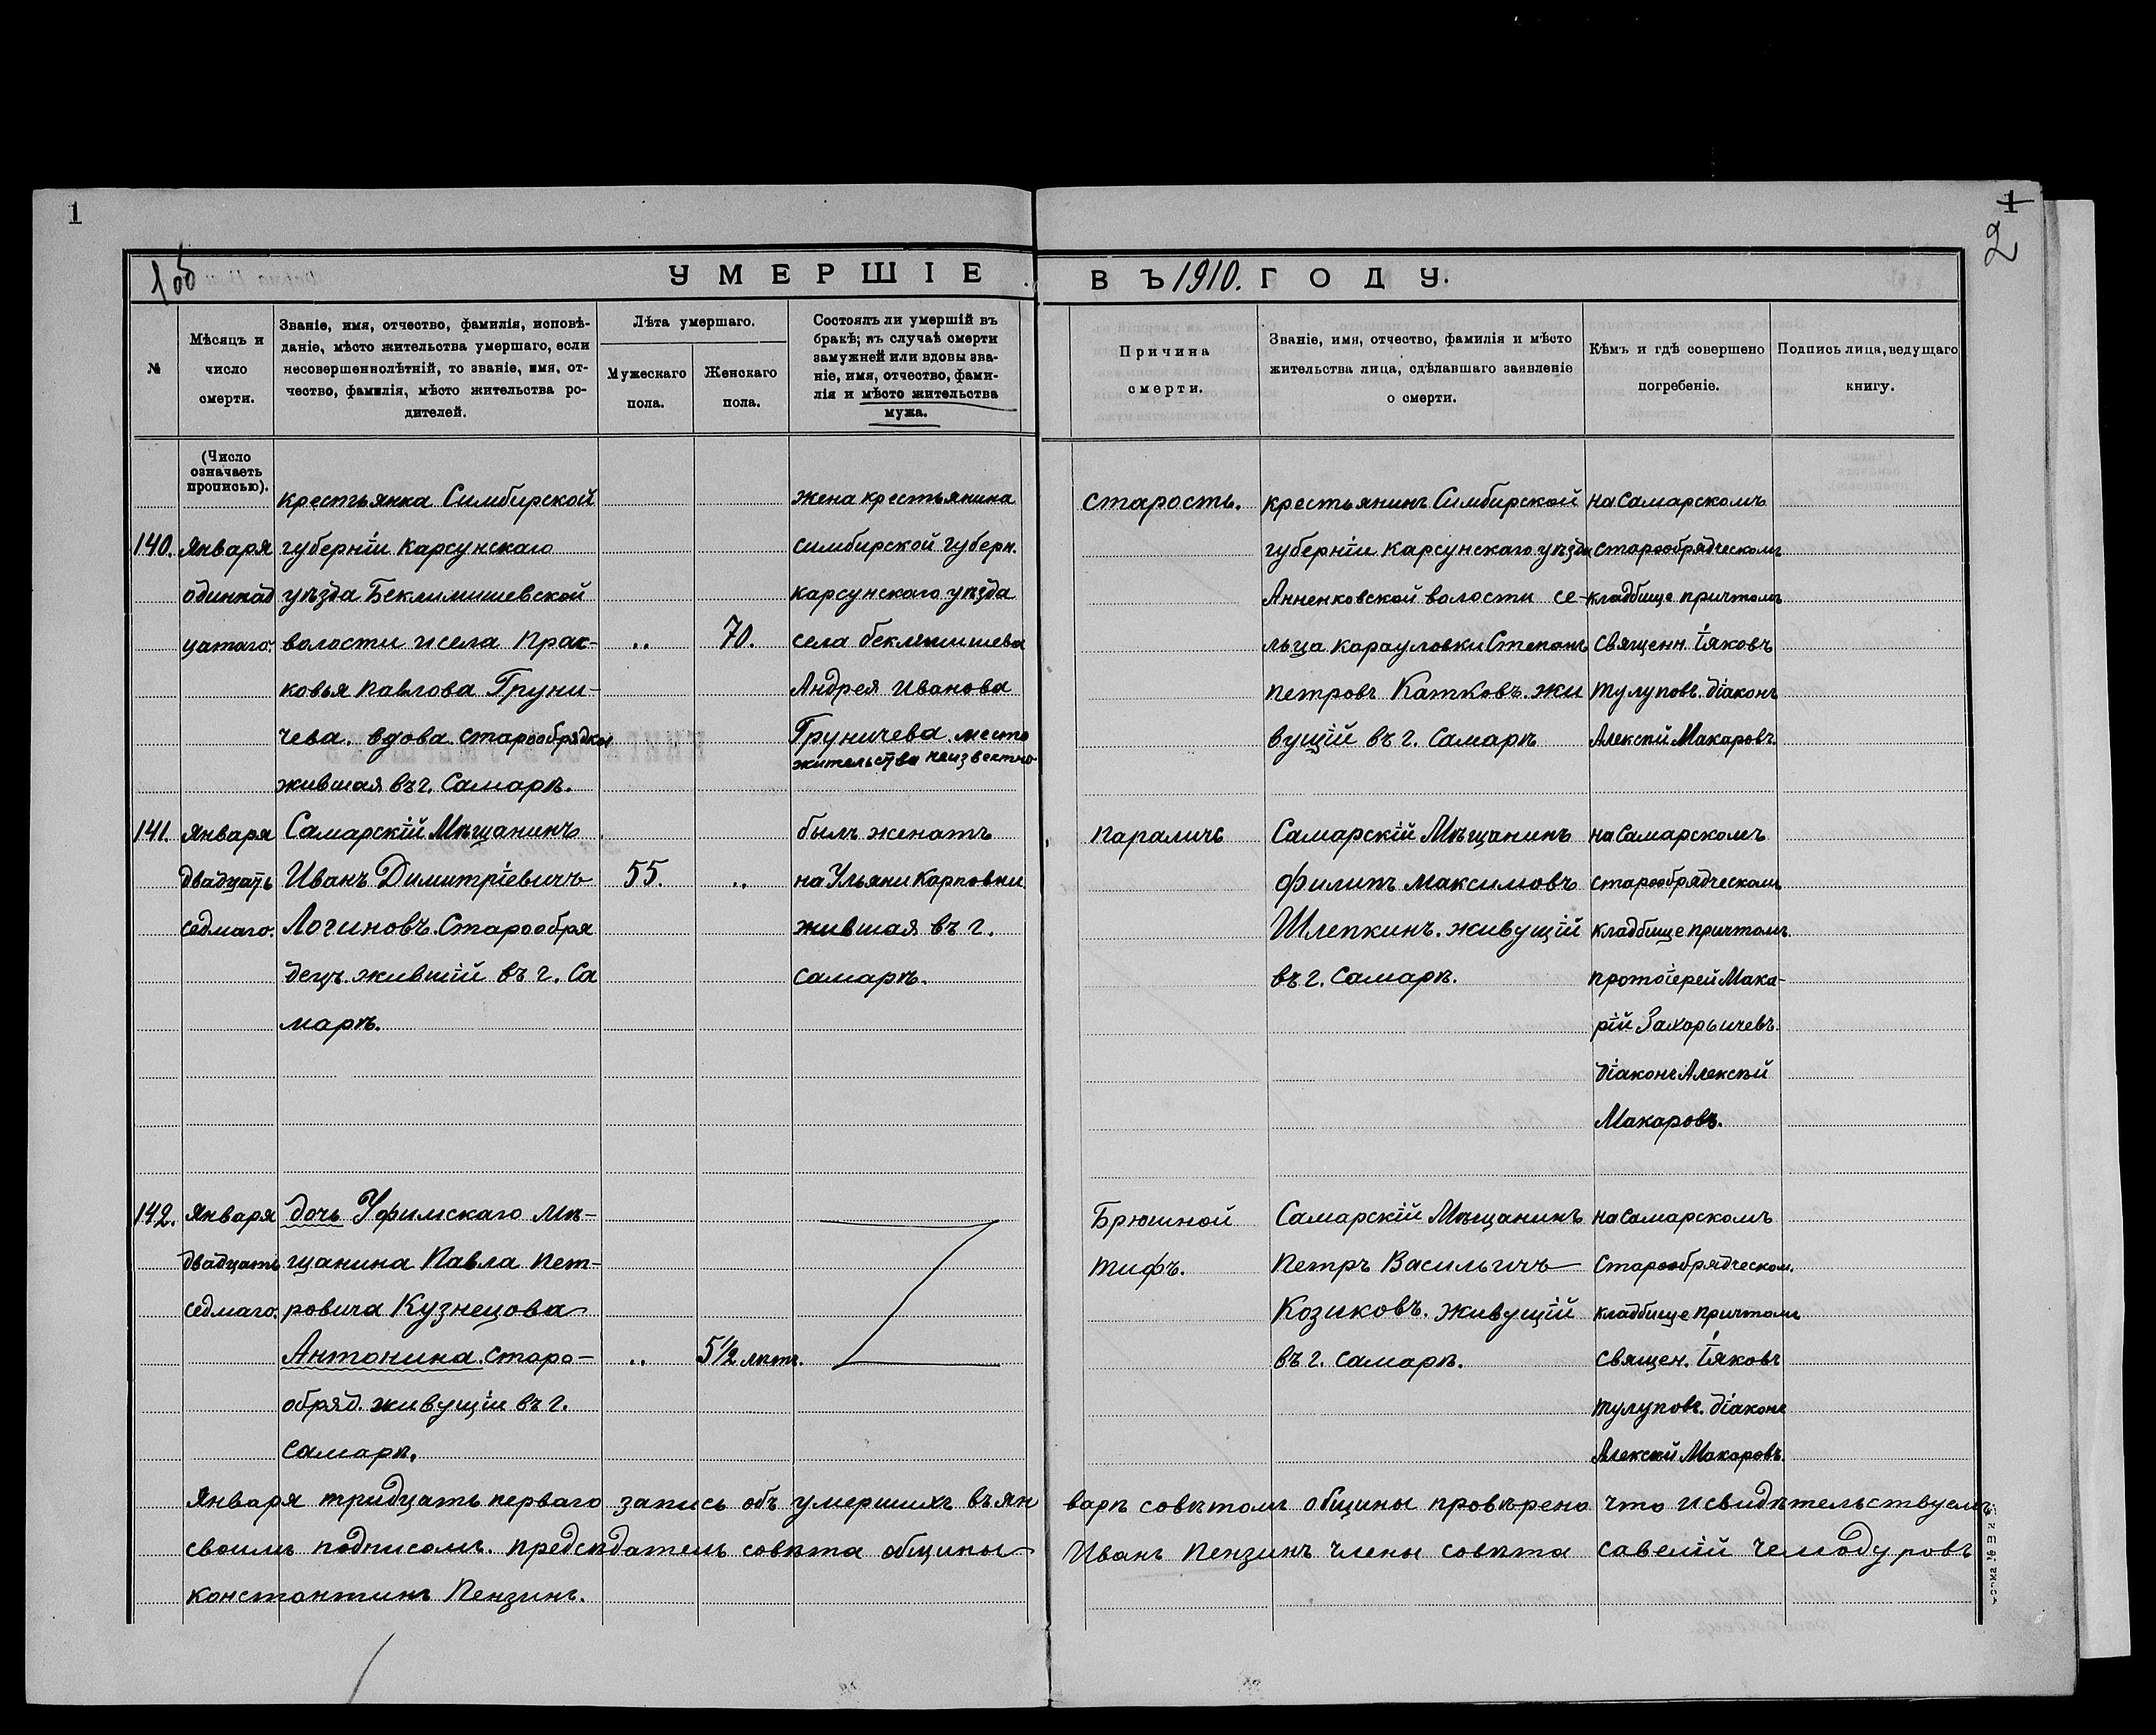 1
1
2
1об
УМЕРШІЕ ВЪ 1910. ГОДУ.
№
Мѣсяцъ и
число
смерти.
Званіе, имя, отчество, фамилія, исповѣ-
даніе, мѣсто жительства умершаго, если
несовершеннолѣтній, то званіе, имя, от-
чество, фамилія, мѣсто жительства ро-
дителей.
Лѣта умершаго.
Мужескаго
пола.
Женскаго
пола.
Состоялъ ли умершій въ
бракѣ; въ случаѣ смерти
замужней или вдовы зва-
ніе, имя, отчество, фами-
лія и мѣсто жительства
мужа.
Причина
смерти.
Званіе, имя, отчество, фамилія и мѣсто
жительства лица, сдѣлавшаго заявленіе
о смерти.
Кѣмъ и гдѣ совершено
погребеніе.
Подпись лица, ведущаго
книгу.
(Число
означаеть
прописью).
140.
Января
одиннад
цатаго.
крестьянка Симбирской
губерніи Карсунскаго
уѣзда Беклимишевской
волости и села Прас-
ковья Павлова Груни-
чева. вдова старообрядка
жившая въ г. Самарѣ.
..
70.
жена крестьянина
симбирской губерн.
карсунскаго уѣзда
села беклимишева
Андрея Иванова
Груничева. место
жительства неизвестно
старость.
крестьянинъ Симбирской
губерніи Карсунскаго уѣзда
Анненковской волости се-
льца Карауловки Степанъ
петровъ Катковъ. жи
вущій въ г. Самарѣ
на Самарскомъ
старообрядческомъ
кладбище причтомъ
Священн. Іяковъ
тулуповъ. діаконъ
Алексѣй Макаровъ.
141.
Января
двадцать
седмаго.
Самарскій Мѣщанинъ
Иванъ Димитріевичъ
Логиновъ. Старообря
децъ. жившій въ г. Са
марѣ.
55.
..
былъ женатъ
на Ульяни Карповни
жившая въ г.
Самарѣ.
параличъ
Самарскій Мѣщанинъ
Филипъ Максимовъ
Шлепкинъ. живущій
въ г. Самарѣ.
на Самарскомъ
старообрядческомъ
кладбище причтомъ
протоіерей Мака-
рій Захарьичевъ.
діаконъ Алексѣй
Макаровъ.
142.
Января
двадцать
седмаго.
дочь Уфимскаго мѣ-
щанина Павла Пет-
ровича Кузнецова
Антонина. старо-
обряд. живущіи въ г.
Самарѣ.
..
5½ лѣтъ.
Брюшной
тифъ.
Самарскій Мѣщанинъ
Петръ Васильичъ
Козиковъ. живущій
въ г. Самарѣ.
на Самарскомъ
Старообрядческом.
кладбище причтомъ
священ. Іяковъ
тулуповъ. діаконъ
Алексѣй Макаровъ.
Января тридцать перваго запись объ умершихъ въ ян варѣ совѣтомъ общины провѣрено что и свидѣтельствуемъ
своимъ подписомъ. предсѣдатель совѣта общины Иванъ Пензинъ члены совѣта савелій Чемодуровъ
константинъ Пензинъ.